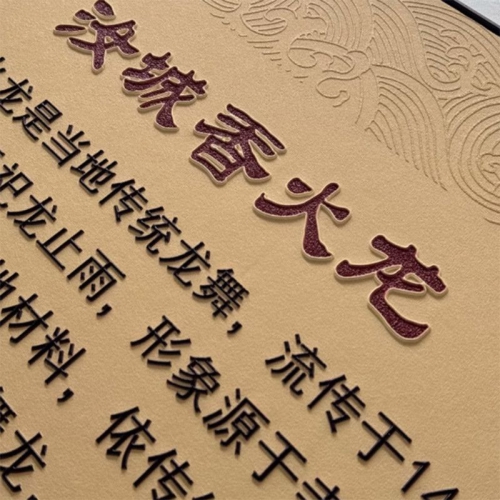 汝城香火龙
龙是当地传统龙舞，流传于1
祝龙止雨，形象源于
地材料，依传
龙